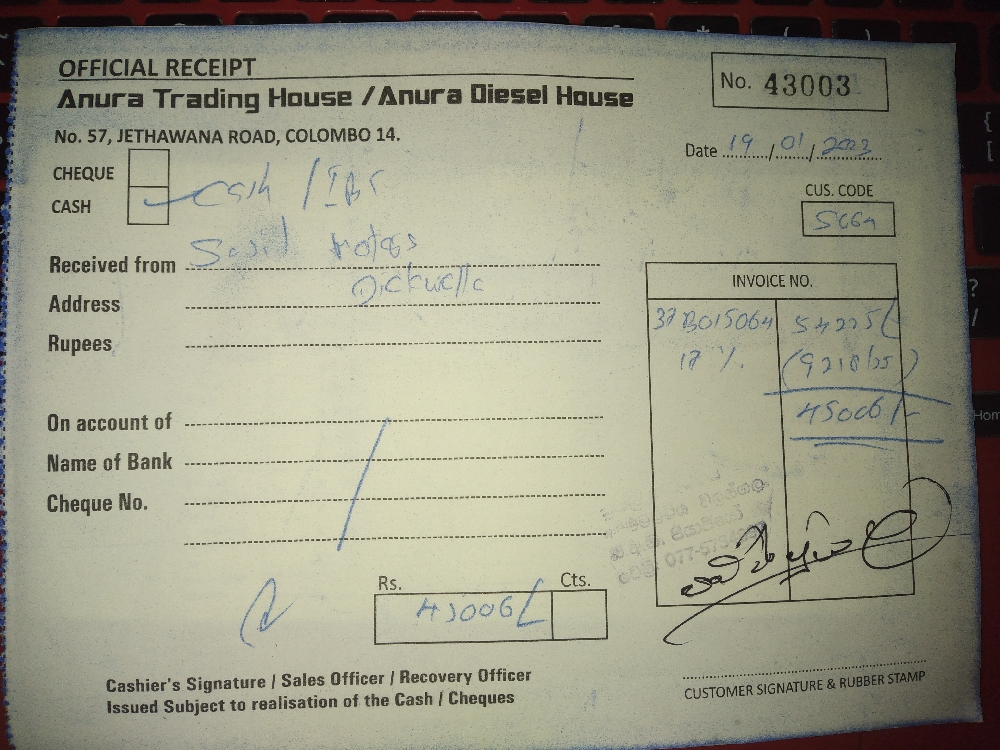 OFFICIAL RECEIPT
No. 43003
Anura Trading House / Anura Diesel House
No. 57, JETHAWANA ROAD, COLOMBO 14.
Date 19/01/2023
CHEQUE
CASH
Cash /
CUS. CODE
Received from
Address Dickwella
Rupees
On account of
Name of Bank
Cheque No.
INVOICE NO.
37B015064 54225/-
17 %. (9218/25)
45006/-
Rs. Cts.
45006/-
Cashier's Signature / Sales Officer / Recovery Officer
Issued Subject to realisation of the Cash / Cheques
CUSTOMER SIGNATURE & RUBBER STAMP